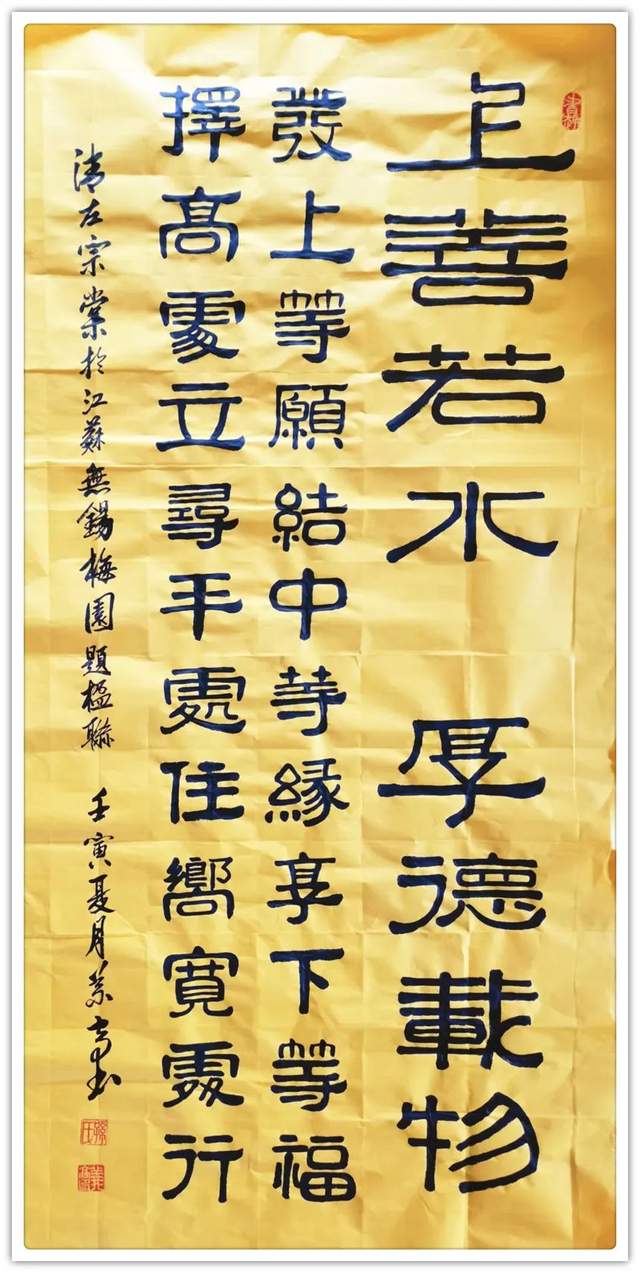 上善若水 厚德載物
發上等願結中等緣享下等福
擇高處立尋平處住嚮寬處行
清左宗棠於江蘇無錫梅園題楹聯 壬寅夏月